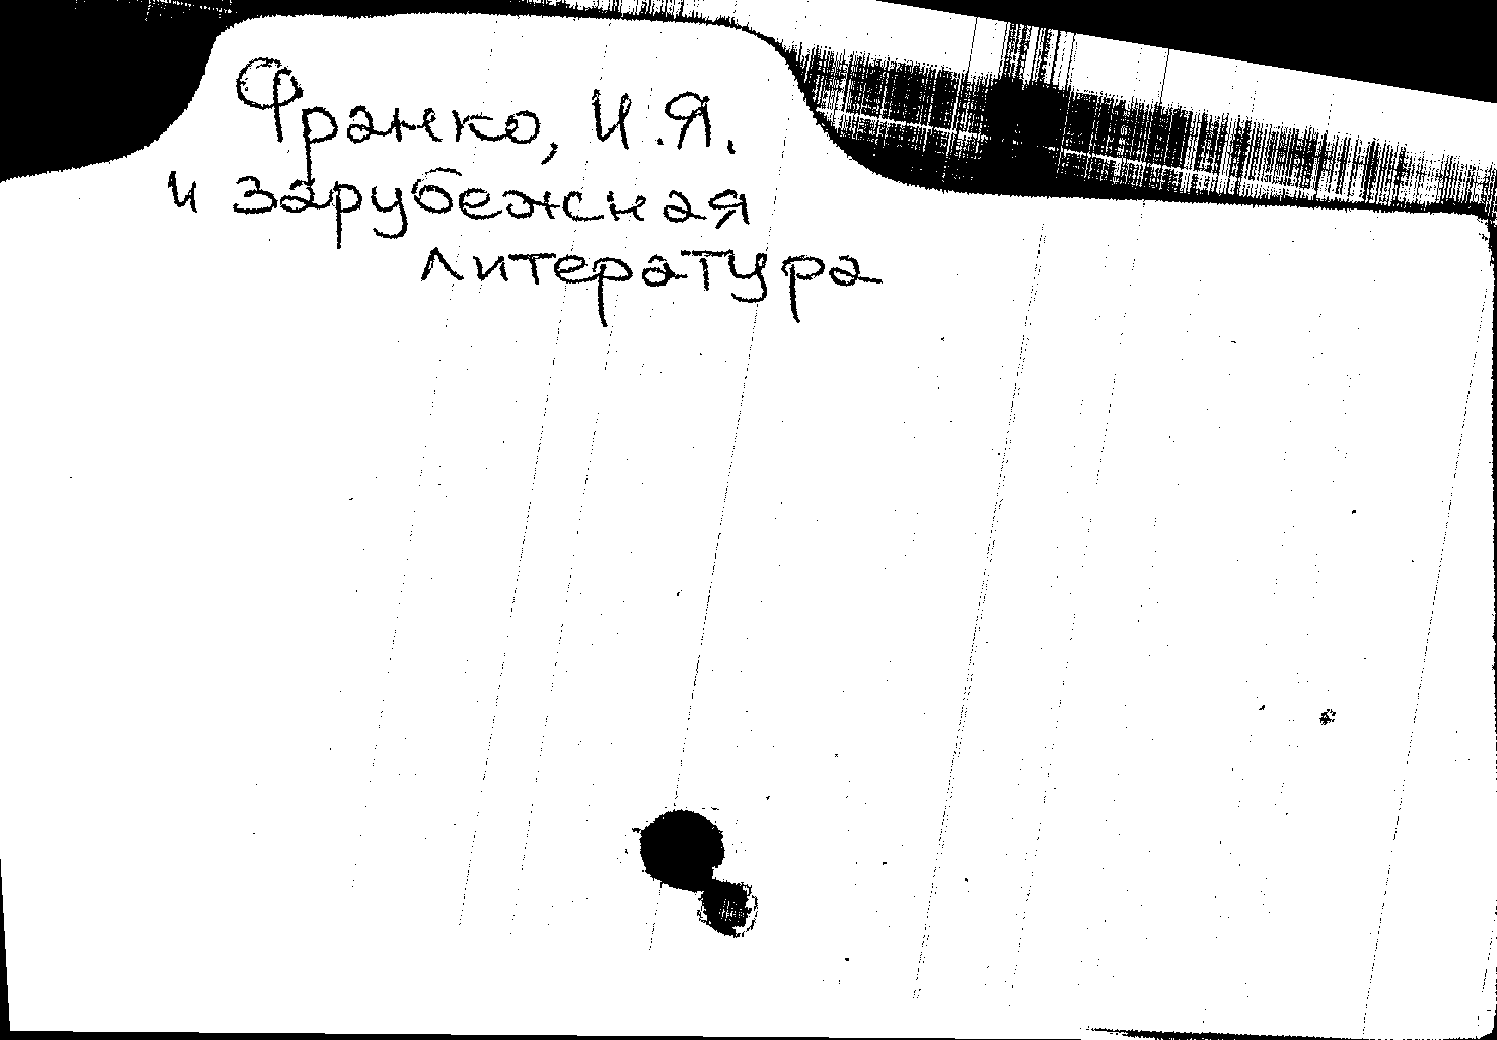 Франко, И.Я.
и зарубежная
литература